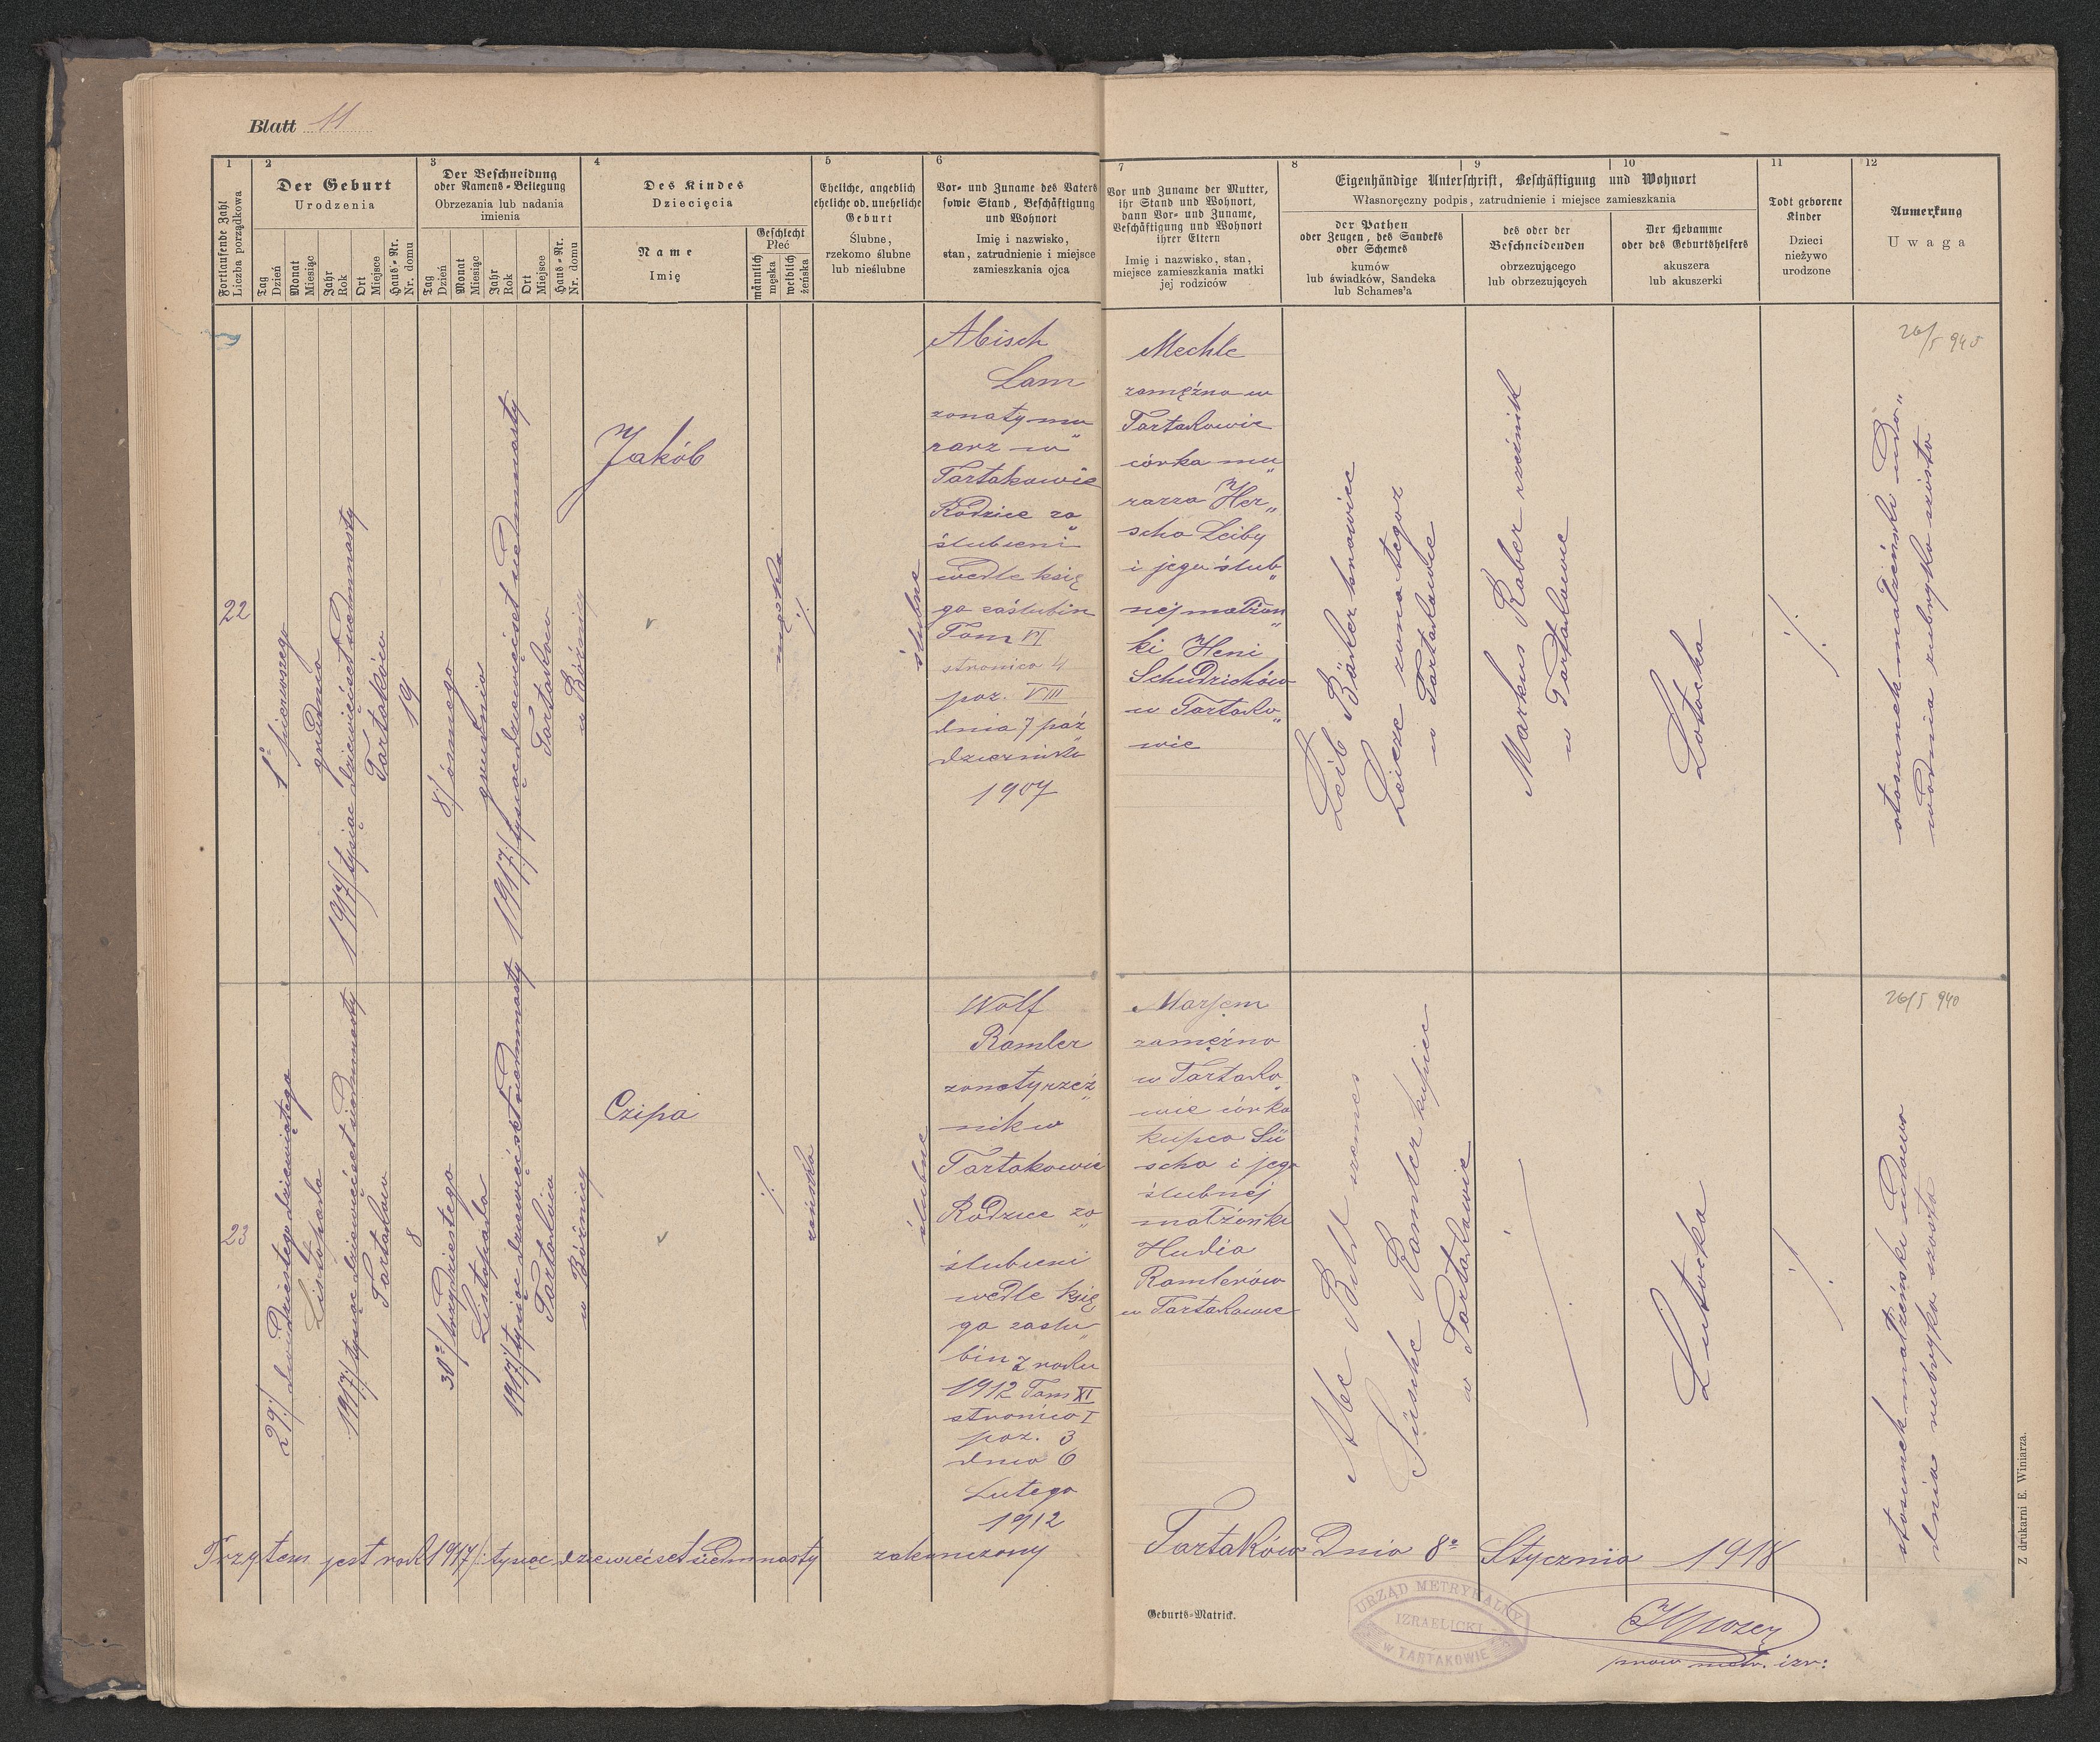 Blatt 11
1
2
3
4
5
6
7
8
9
10
11
12
Fortlaufende Zahl
Liczba porządkowa
Der Geburt
Urodzenia
Tag
Dzień
Monat
Miesiąc
Jahr
Rok
Ort
Miejsce
Haus-Nr.
Nr. domu
Der Beschneidung
oder Namens-Beilegung
Obrzezania lub nadania
imienia
Tag
Dzień
Monat
Miesiąc
Jahr
Rok
Ort
Miejsce
Haus-Nr.
Nr. domu
Des Kindes
Dziecięcia
Name
Imię
Geschlecht
Płeć
männlich
męska
weiblich
żeńska
Eheliche, angeblich
eheliche od. uneheliche
Geburt
Ślubne,
rzekomo ślubne
lub nieślubne
Vor- und Zuname des Vaters
sowie Stand, Beschäftigung
und Wohnort
Imię i nazwisko,
stan, zatrudnienie i miejsce
zamieszkania ojca
Vor und Zuname der Mutter,
ihr Stand und Wohnort,
dann Vor- und Zuname,
Beschäftigung und Wohnort
ihrer Eltern
Imię i nazwisko, stan,
miejsce zamieszkania matki
jej rodziców
Eigenhändige Unterschrift, Beschäftigung und Wohnort
Własnoręczny podpis, zatrudnienie i miejsce zamieszkania
der Pathen
oder Zeugen, des Sandeks
oder Schemes
kumów
lub świadków, Sandeka
lub Schames'a
des oder der
Beschneidenden
obrzezującego
lub obrzezujących
Der Hebamme
oder des Geburtshelfers
akuszera
lub akuszerki
Todt geborene
Kinder
Dzieci
nieżywo
urodzone
Anmerkung
Uwaga
22
1º pierwszego
grudnia
1917/ tysiąc dziewięćset siedmnasty
Tartaków
19
8/ ósmego
grudnia
1917/ tysiąc dziewięćset siedmnasty
Tartaków
w Bóżnicy
Jakób
męska
·/.
ślubne
Abisch
Lam
żonaty mu„
rarz w
Tartakowie
Rodzice za„
ślubieni
wedle księ
ga zaślubin
Tom VI
stronica 4
poz. VIII
dnia 7 paź„
dziernika
1907
Mechle
zamężna w
Tartakowie
córka mu„
rarza Her„
scha Leiby
i jego ślub„
nej małżon„
ki Heni
Schudrichów
w Tartako„
wie
Leib Bäker krawiec
Leicze żona tegoż
w Tartakowie
Markus Raber rzeźnik
w Tartakowie
Łotocka
·/.
26/5 940
stosunek małżeński udo„
wodnia rubryka szósta
23
29/ dwudziestego dziewiątego
Listopada
1917/ tysiąc dziewięćset siedmnasty
Tartaków
8
30º/ trzydziestego
Listopada
1917/ tysiąc dziewięćset siedmnasty
Tartakowie
w Bóżnicy
Czipa
·/.
żeńska
ślubne
Wolf
Ramler
żonaty rzeź„
nik w
Tartakowie
Rodzice za„
ślubieni
wedle księ
ga zaślu„
bin z roku
1912 Tom XI
stronica I
poz. 3
dnia 6
Lutego
1912
Marjem
zamężna
w Tartako„
wie córka
kupca Sü
scha i jego
ślubnej
małżonki
Hudia
Ramlerów
w Tartakowie
Süsche Ramler kupiec
w Tartakowie
Lutocka
·/.
26/5 940
stosunek małżeński udowo
dnia rubryka szósta
jest rok 1917/: tysiąc dziewięćset siedmnasty zakończony
Tartaków Dnia 8º Stycznia 1918
Geburts-Matrick.
URZĄD METRYKALNY
IZRAELICKI
W TARTAKOWIE
prow metr. izr:
Z drukarni E. Winiarza.